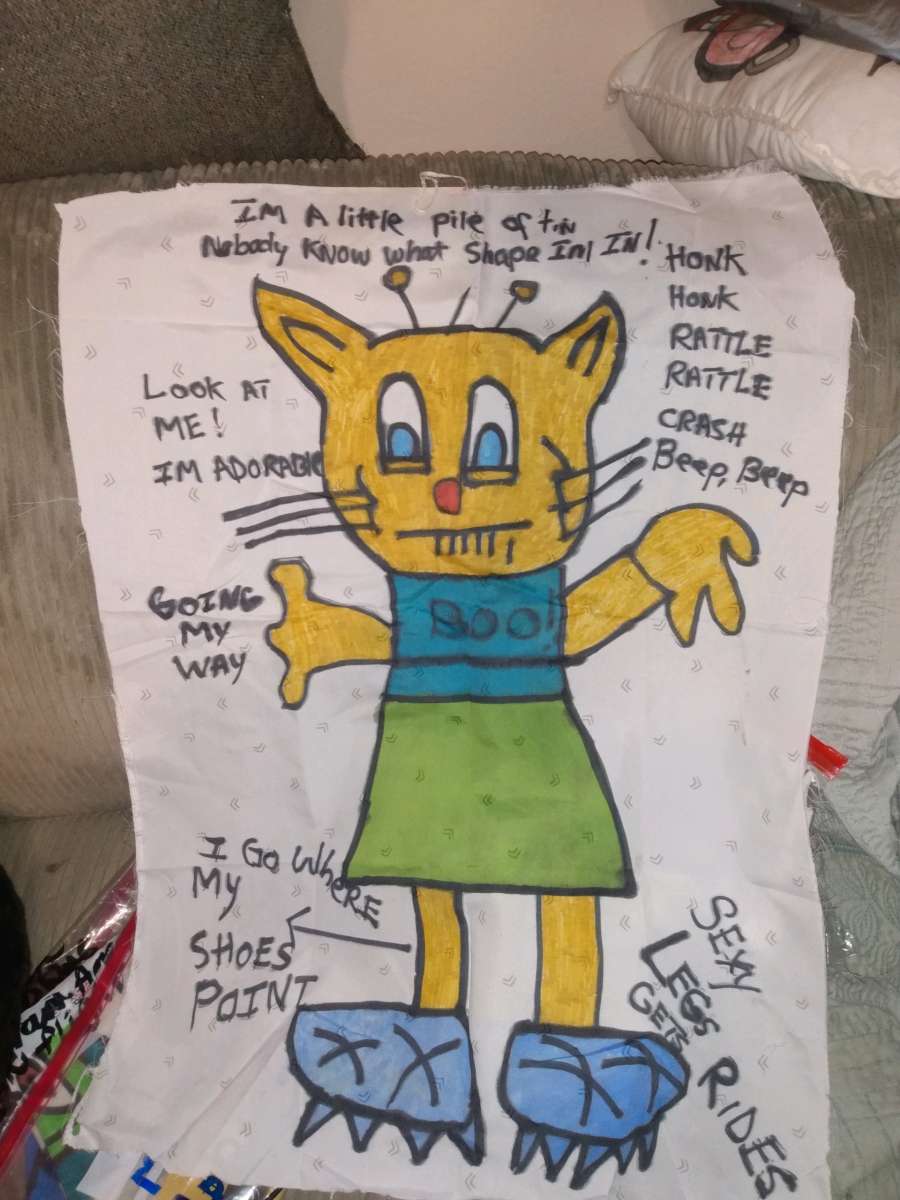 IM A little pile of tin
Nobody know what shape Im IN!
HONK
HONK
RATTLE
RATTLE
CRASH
Beep, Beep
LOOK AT
ME!
IM ADORABLE
GOING
MY
WAY
BOO!
I GO WHERE
MY
SHOES
POINT
SEXY
LEGS
GETS
RIDES